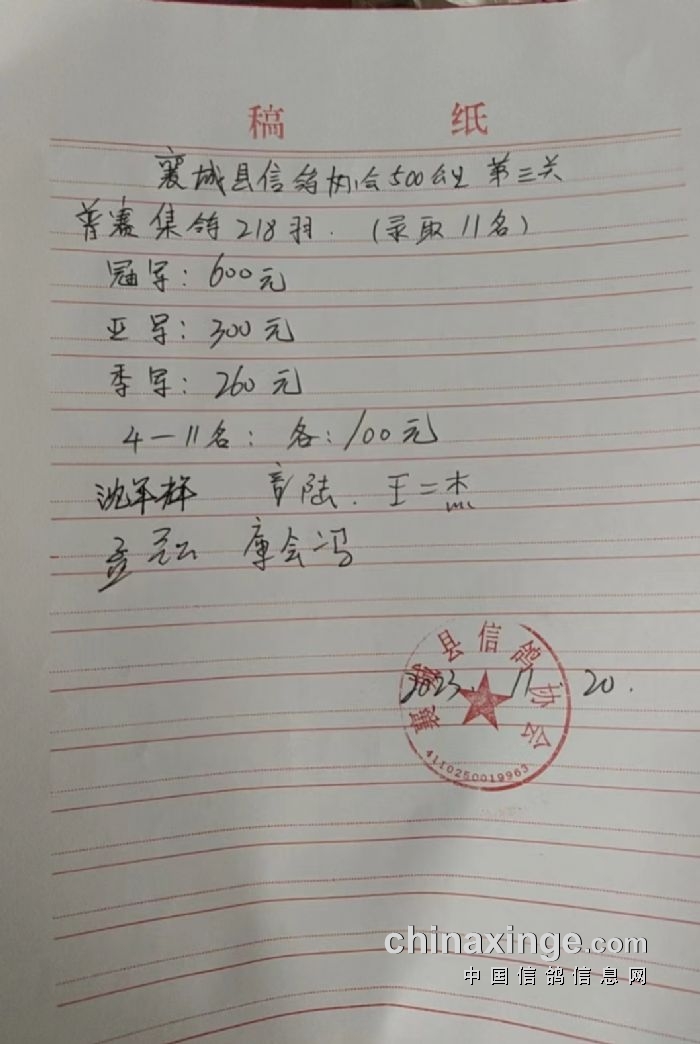 稿 纸
襄城县信鸽协会500公里 第三关
普赛集鸽218羽.(录取11名)
冠军:600元
亚军:300元
季军:260元
4一11名:各:100元
沈军辉 陆. 王二杰
孟 会冯
襄城县信鸽协会
2023.11.20.
4110250019963
chinaxinge.com
中国信鸽信息网